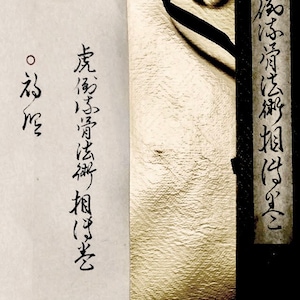 倒流骨法術相傳巻
虎倒流骨法術相傳巻